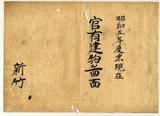 昭和五年度末現在
官有建物畓面
新竹